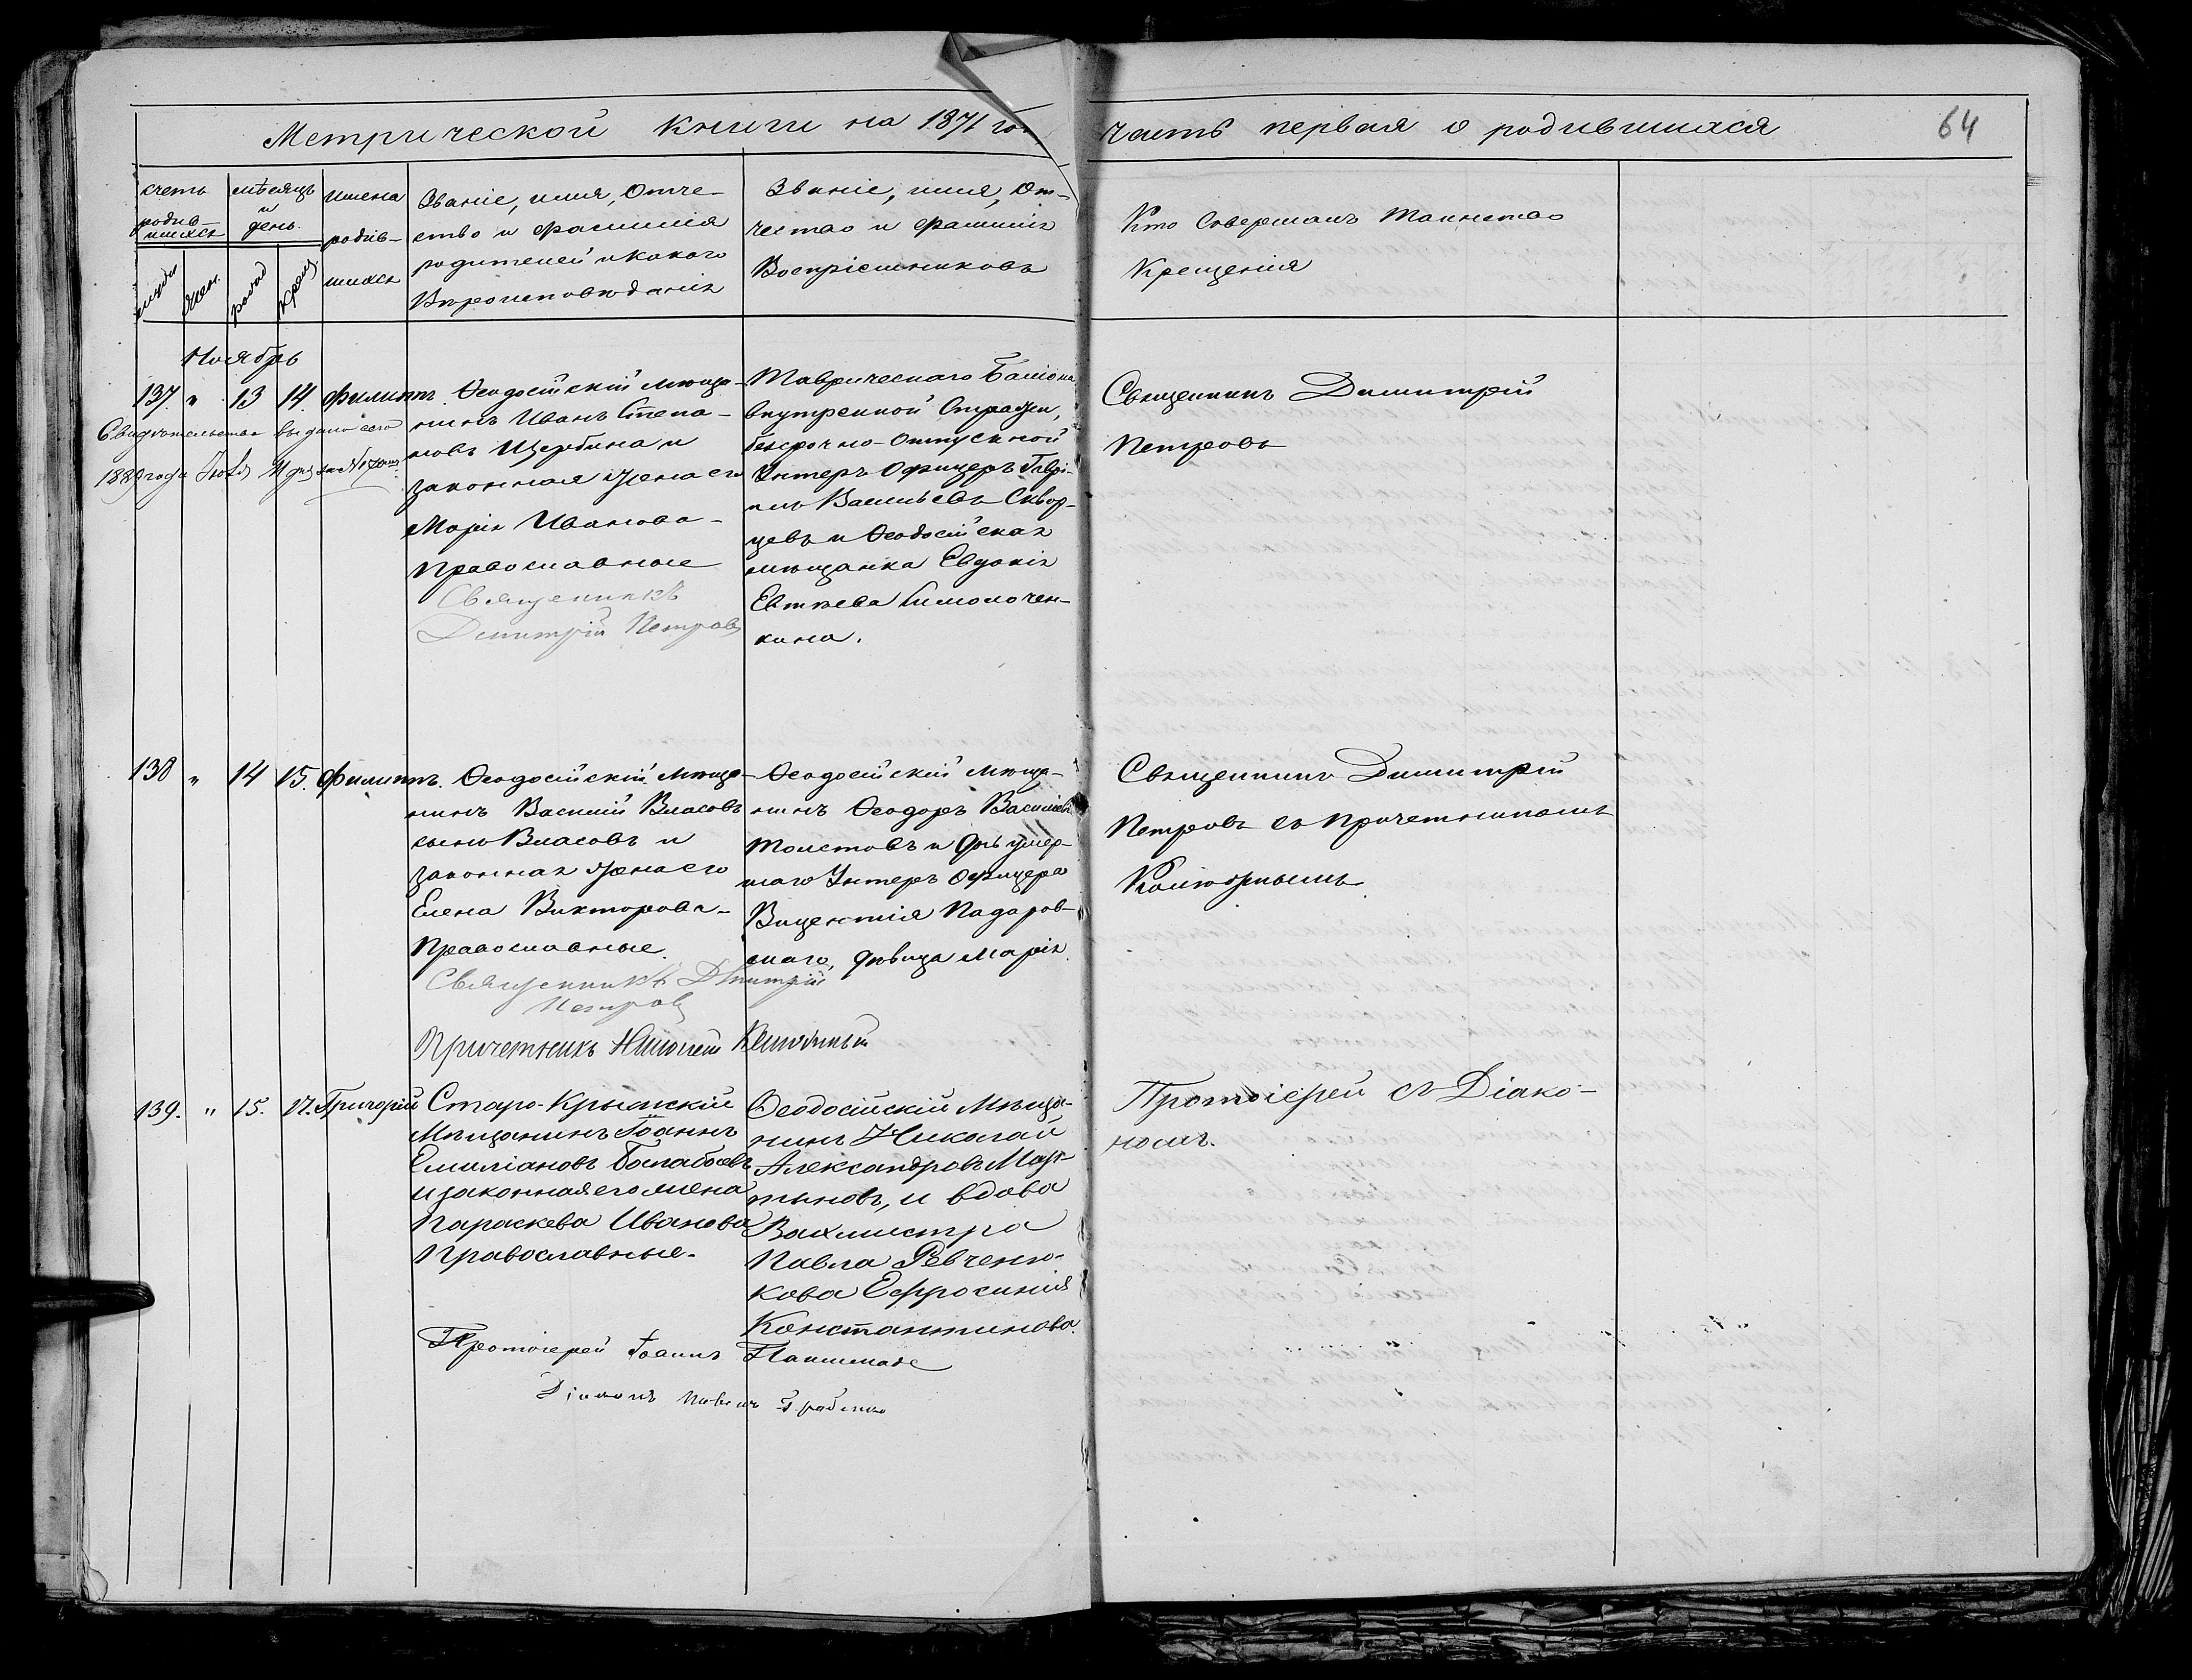 Метрической книги на 1871 годъ
часть первая о родившихся
64
счетъ родив-
шихся
мѣсяцъ
и
день.
имена
родив-
шихся
Званіе, имя, Отче-
ство и фамилія
родителей и какого
Вѣроисповѣданія
Званіе, имя, От-
чество и фамилія
Воспріемниковъ
Кто Совершалъ Таинство
Крещенія
мужс
жен.
рожд
крещ
Ноябрь
137. " 13 14. Филиппъ.
Свидѣтельство выдано сего
188 года Іюля
Ѳеодосійскій мѣща-
нинъ Иванъ Степа-
новъ Щербина и
законная жена его
Марія Иванова-
православные
Священникъ
Димитрій Петровъ
Таврическаго Баталіона
внутренной Стражи,
безсрочно-отпускной
Унтеръ Офицеръ Гаврі-
илъ Васильевъ Сквор-
цевъ и Ѳеодосійская
мѣщанка Евдокія
Евтѣева
кина.
Священникъ Димитрій
Петровъ
138 " 14 15. Филиппъ.
Ѳеодосійскій мѣща-
нинъ Василій Власовъ
сынъ Власовъ и
законная жена его
Елена Викторова-
Православные.
Священникъ Дмитрій
Петровъ
Причетникъ Николай
Ѳеодосійскій мѣща-
нинъ Ѳеодоръ Васильевъ
Толстовъ и дочь умер-
шаго Унтеръ Офицера
Вицентія Падаров-
скаго, дѣвица Марія.
Священникъ Димитрій
Петровъ съ Причетникомъ
139. " 15. 17. Григорій
Старо-Крымскій
Мѣщанинъ Іоаннъ
Емиліановъ Балабаевъ
и законная его жена
Параскева Иванова
Православные.
Протоіерей Іоаннъ
Діаконъ Павелъ
Ѳеодосійскій Мѣща-
нинъ Николай
Александровъ Мар-
тыновъ, и вдова
Вахмистра
Павла Ревченко-
кова Ефросинія
Константинова.
Протоіерей съ Діако-
номъ.